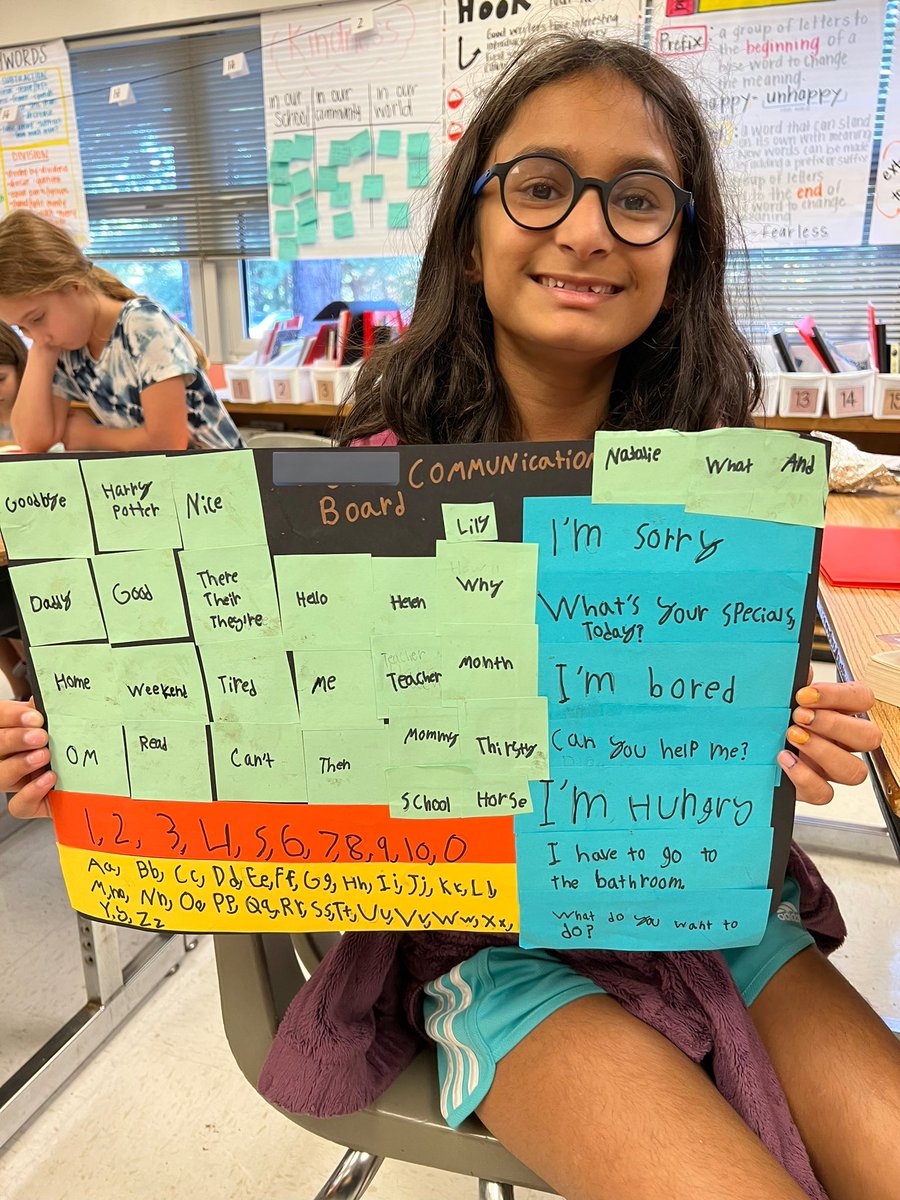 WORDS
SUBTRACTION
DIVISION
Kindness
in our school
in our community
in our world
2
HOOK
Good writers have interesting
Prefix - a group of letters to
the beginning of a
base word to change
the meaning.
happy - unhappy
a word that can stand
on its own with meaning
New words can be made
adding a prefix or suffix
group of letters
to the end of
word to change
meaning
- fearless
1
2
3
13
14
15
COMMUNICATION
Board
Goodbye
Harry Potter
Nice
Lily
Natalie
What
And
Daddy
Good
There
Their
They're
Hello
Helen
Why
Home
Weekend
Tired
Me
Teacher
Teacher
Month
OM
Read
Can't
Then
Mommy
Thirsty
School
Horse
I'm sorry
What's Your Specials,
Today?
I'm bored
Can you help me?
I'm Hungry
I have to go to
the bathroom.
What do you want to
do?
1, 2, 3, 4, 5, 6, 7, 8, 9, 10, 0
Aa, Bb, Cc, Dd, Ee, Ff, Gg, Hh, Ii, Jj, Kk, Ll,
Mm, Nn, Oo, Pp, Qq, Rr, Ss, Tt, Uu, Vv, Ww, Xx,
Yy, Zz
adidas